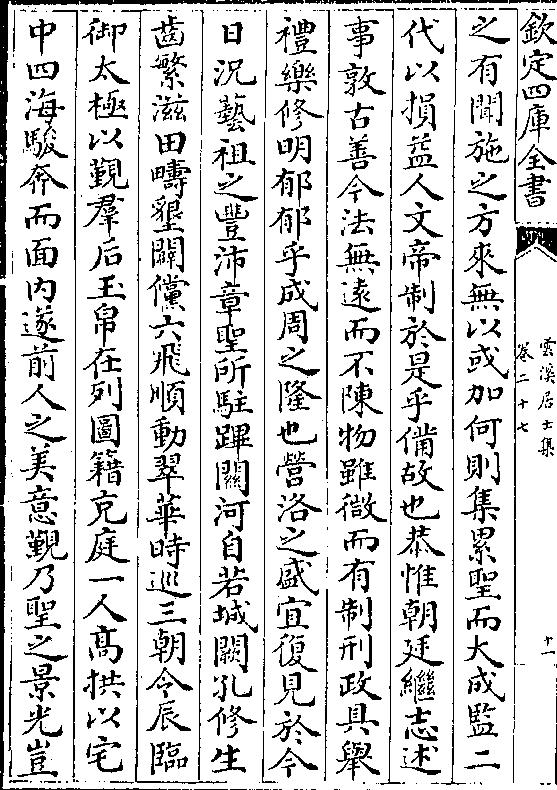 欽定四庫全書
雲溪居士集
卷二十七
十一
之有聞施之方來無以或加何則集累聖而大成監二
代以損益人文帝制於是乎備故也恭惟朝廷繼志述
事敦古善今法無遠而不陳物雖微而有制刑政具舉
禮樂修明郁郁乎成周之隆也營洛之盛宜復見於今
日況藝祖之豐沛章聖所駐蹕關河自若城闕孔修生
齒繁滋田疇墾闢儻六飛順動翠華時巡三朝令辰臨
御太極以覲羣后玉帛在列圖籍充庭一人髙拱以宅
中四海駿奔而面内遂前人之美意觀乃聖之景光豈